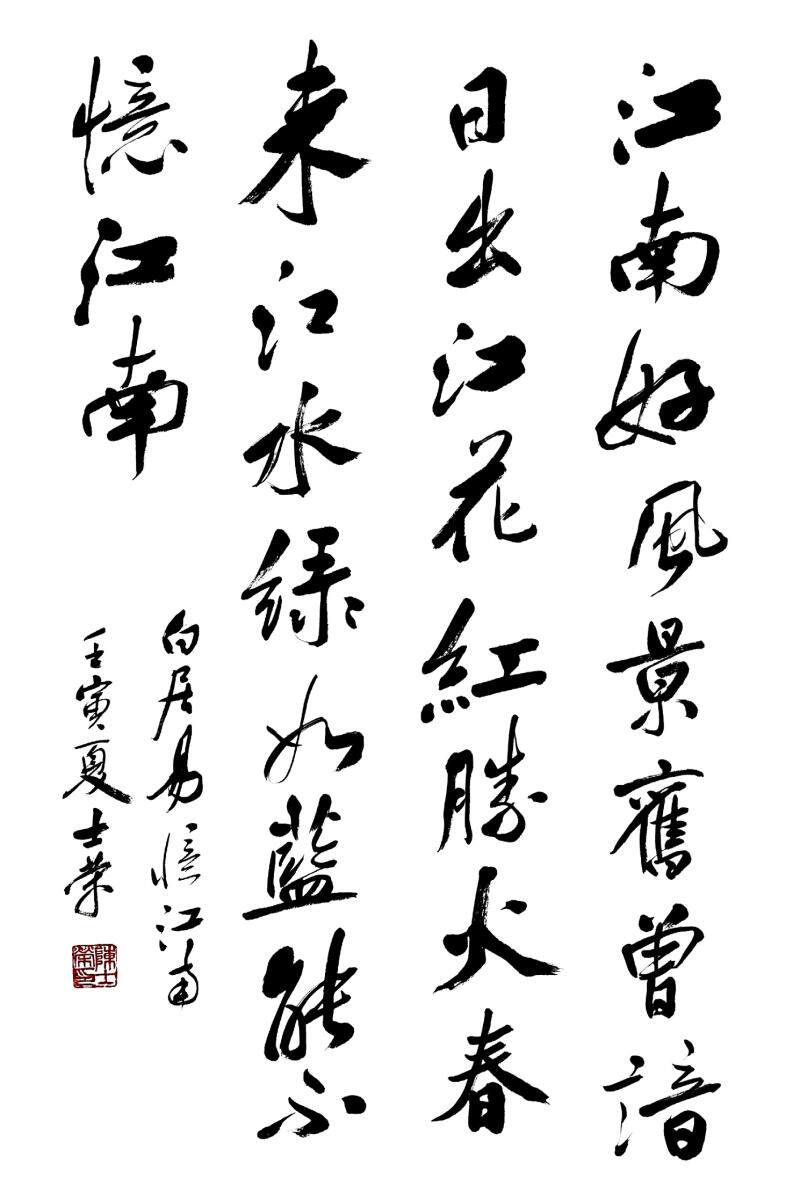 江南好風景舊曾諳
日出江花紅勝火春
来江水緑如藍能不
憶江南
白居易憶江南
壬寅夏士榮
陳士榮印